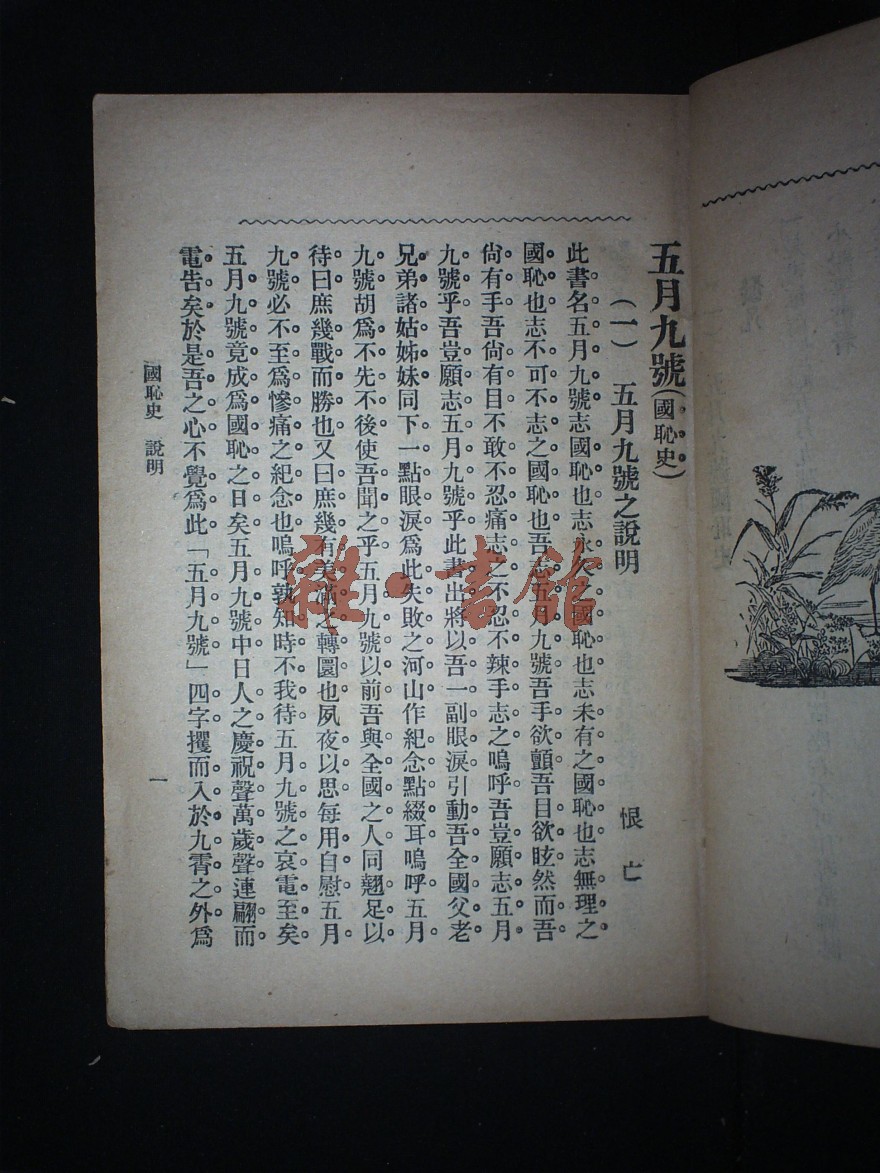 五月九號(國恥史)
(一) 五月九號之說明
恨亡
此書名五月九號志國恥也志永久之國恥也志未有之國恥也志無理之
國恥也志不可不志之國恥也吾志五月九號吾手欲顫吾目欲眩然而吾
尙有手吾尙有目不敢不忍痛志之不忍不辣手志之嗚呼吾豈願志五月
九號乎吾豈願志五月九號乎此書出將以吾一副眼淚引動吾全國父老
兄弟諸姑姊妹同下一點眼淚爲此失敗之河山作紀念點綴耳嗚呼五月
九號胡爲不先不後使吾聞之乎五月九號以前吾與全國之人同翹足以
待曰庶幾戰而勝也又曰庶幾有美滿之轉圜也夙夜以思每用自慰五月
九號必不至爲慘痛之紀念也嗚呼孰知時不我待五月九號之哀電至矣
五月九號竟成爲國恥之日矣五月九號中日人之慶祝聲萬歲聲連翩而
電告矣於是吾之心不覺爲此「五月九號」四字攫而入於九霄之外爲
國恥史 說明
一
雜·書館